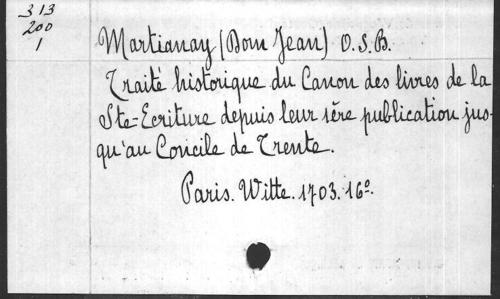 313
200
1
Martianay (Dom Jean) O.S.B.
Traité historique du Canon des livres de la
Ste=Ecriture depuis leur 1ère publication jus-
qu'au Concile de Trente.
Paris. Witte. 1703. 16º.